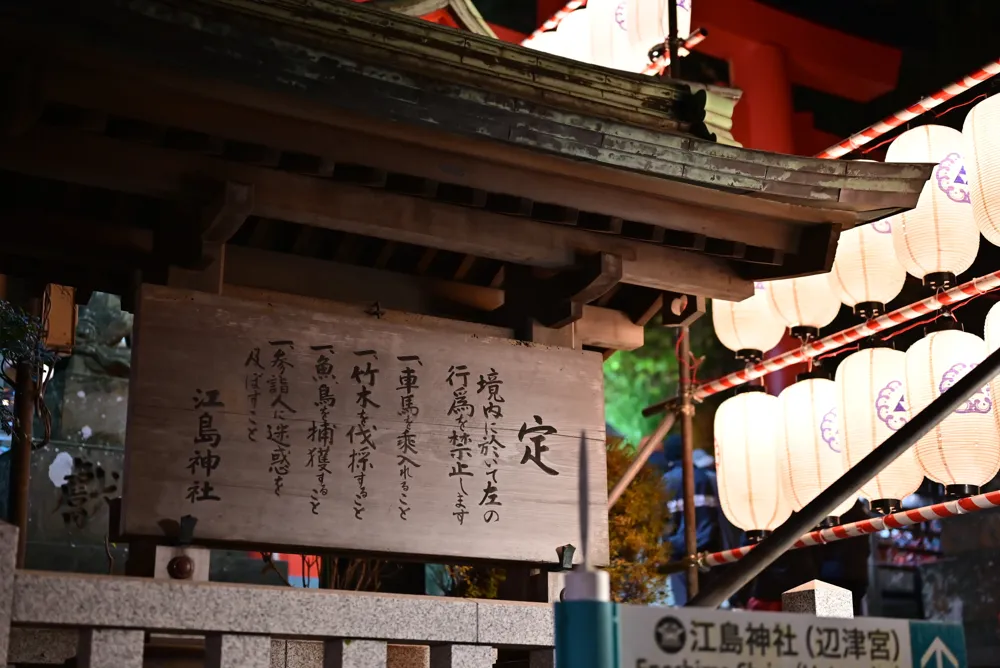 定
境内に於いて左の
行為を禁止します
一、車馬を乗入れること
一、竹木を伐採すること
一、魚鳥を捕獲すること
一、参詣人に迷惑を
及ぼすこと
江島神社
江島神社(辺津宮)